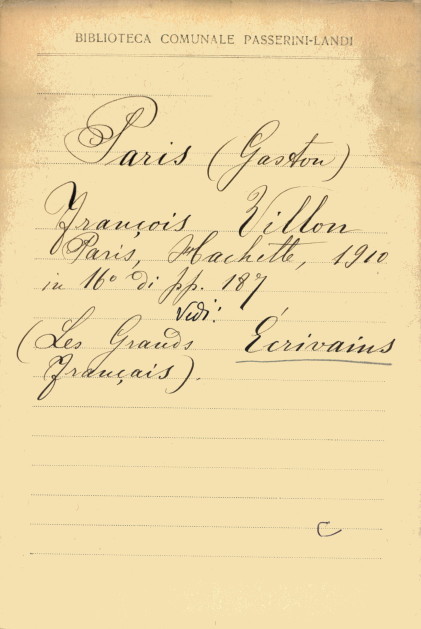 BIBLIOTECA COMUNALE PASSERINI-LANDI
Paris (Gaston)
François Villon
Paris, Hachette, 1910
in 16° di pp. 187
Vedi:
(Les Grands Écrivains
Français).
C